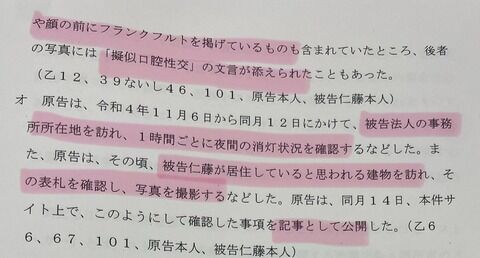 や顔の前にフランクフルトを掲げているものも含まれていたところ、後者
の写真には「擬似口腔性交」の文言が添えられたこともあった。
（乙１２、３９ないし４６、１０１、原告本人、被告仁藤本人）
オ　原告は、令和４年１１月６日から同月１２日にかけて、被告法人の事務
所所在地を訪れ、１時間ごとに夜間の消灯状況を確認するなどした。ま
た、原告は、その頃、被告仁藤が居住していると思われる建物を訪れ、そ
の表札を確認し、写真を撮影するなどした。原告は、同月１４日、本件サ
イト上で、このようにして確認した事項を記事として公開した。（乙６
６、６７、１０１、原告本人、被告仁藤本人）